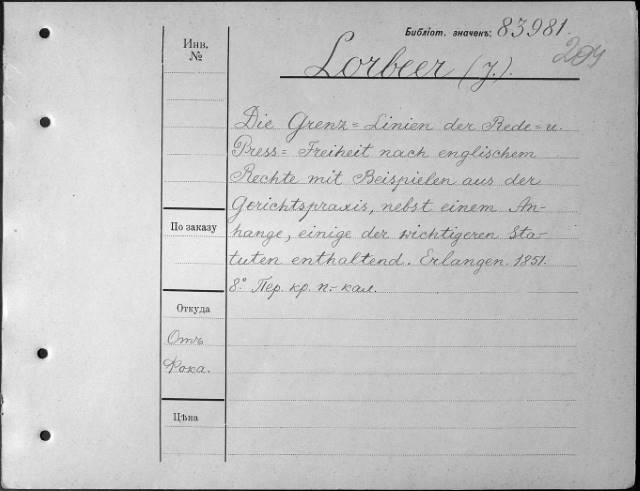 Библіот. значекъ: 83981.
204
Инв. №
Lorbeer (J.).
Die Grenz=Linien der Rede=u.
Press=Freiheit nach englischem
Rechte mit Beispielen aus der
Gerichtspraxis, nebst einem An-
hange, einige der wichtigeren Sta-
tuten enthaltend. Erlangen. 1851.
8.° Пер. кр. п.-кал.
По заказу
Откуда
Отъ
Фока.
Цѣна